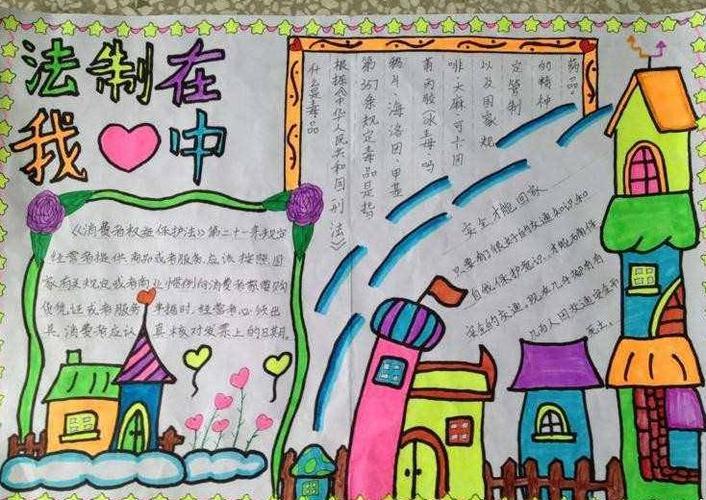 法制在
我中
《消费者权益保护法》第二十一条规定
经营者提供商品或者服务,应该按照国
家有关规定或者商业惯例向消费者索要购
货凭证或者服务单据时,经营者必须出
具。消费者应认真核对发票上的日期。
什么是毒品
根据《中华人民共和国刑法》
第357条规定毒品是指
鸦片、海洛因、甲基
苯丙胺(冰毒)、吗
啡、大麻、可卡因
以及国家规
定管制
的精神
药品。
安全才能回家
只要有很好的交通知识和
自我保护意识,才能
安全的交通,现在几乎都有
几百人因交通